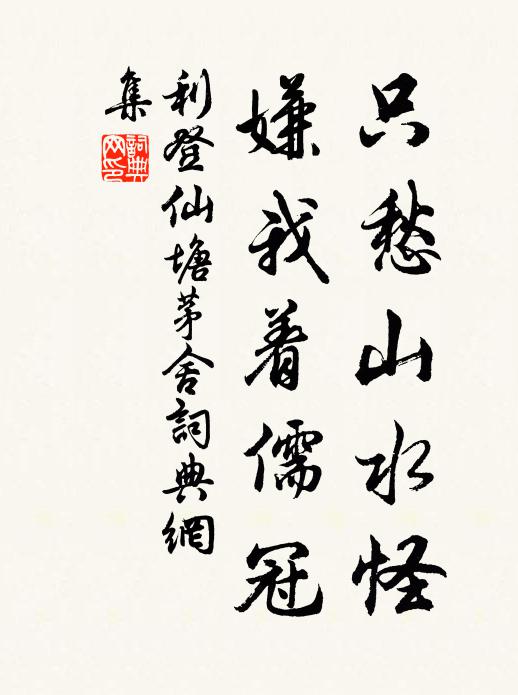 只愁山水怪
嫌我着儒冠
利登仙塘茅舍詞典網
集
詞典
網印